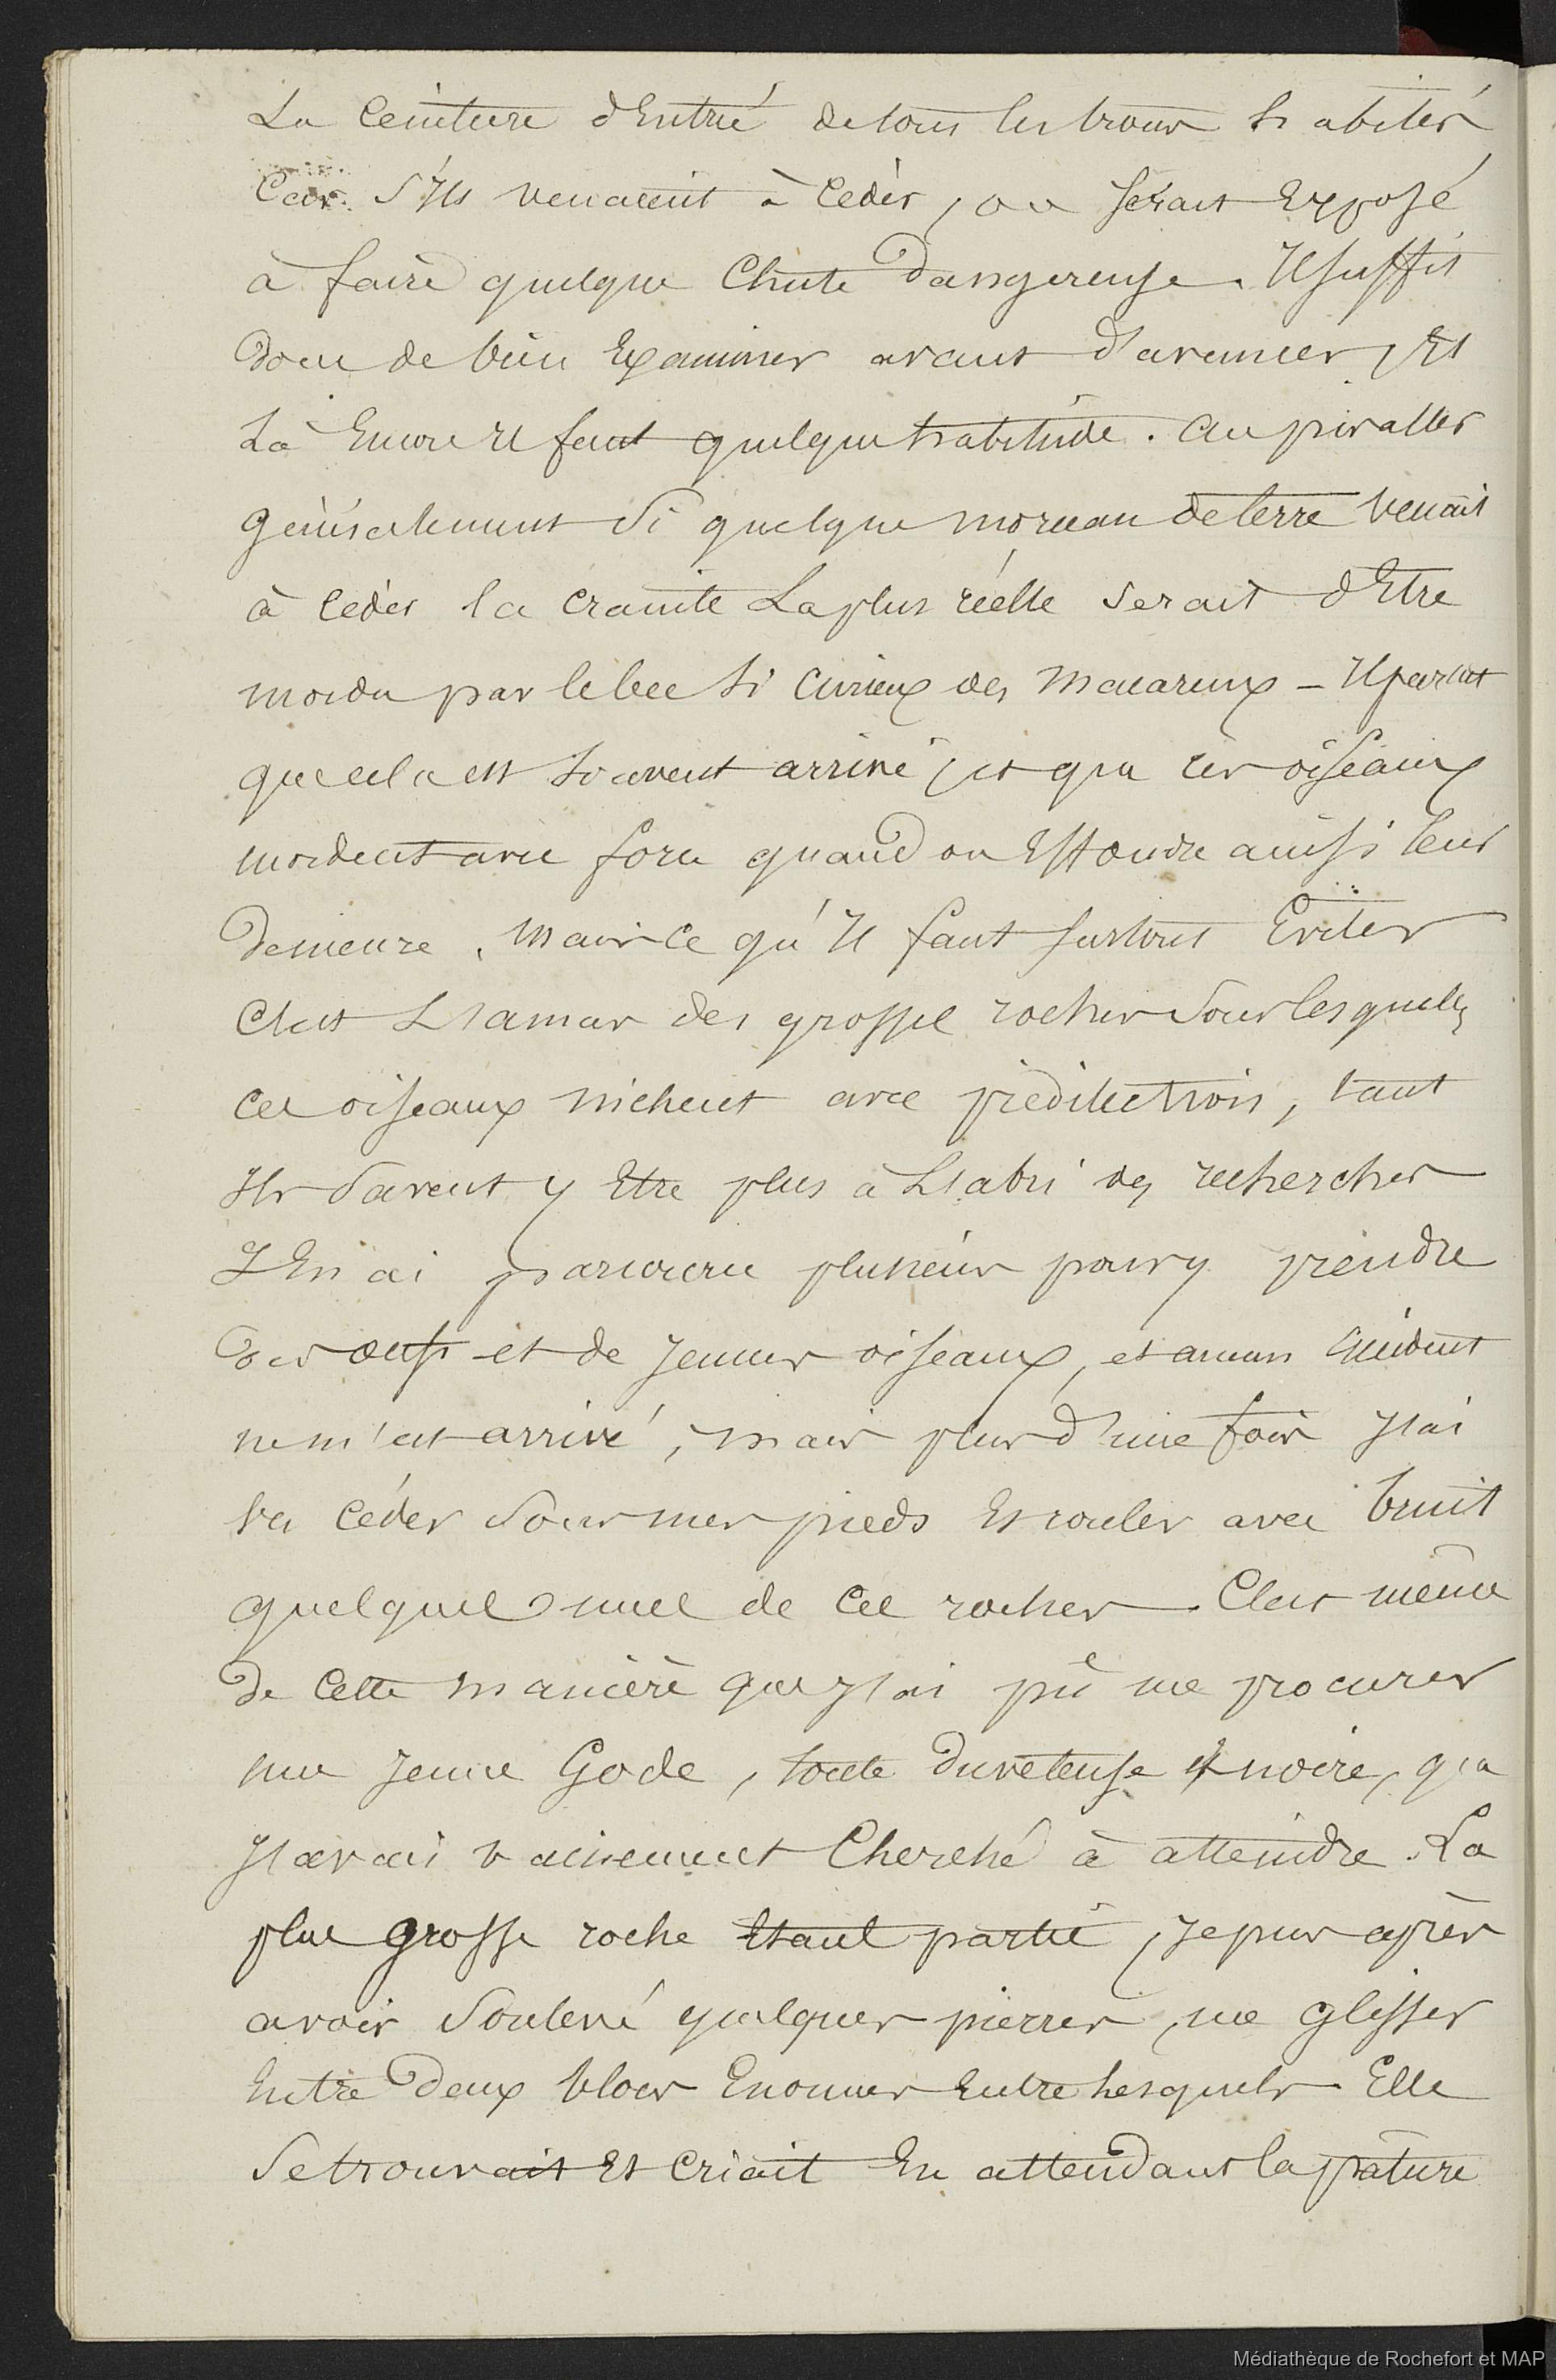 La ceinture d'Entrée de tous les trous habités
Car s'Ils venaient à Ceder, on serait Exposé
à faire quelque Chute Dangereuse. Il suffit
Donc de bien Examiner avant d'avancer, Et
Là Encore Il faut quelque habitude. Au pis aller
généralement si quelque morceau de terre venait
à ceder la crainte La plus réelle serait d'Etre
mordu par le bec si curieux des Macareux – Il parait
que cela est souvent arrivé, et que ces oiseaux
mordent avec force quand on Effondre ainsi leur
Demeure. Mais ce qu'Il faut surtout Eviter
C'est L'amas des grosses roches sous lesquels
ces oiseaux nichent avec prédilection, tant
Ils savent y Etre plus à L'abri des recherches
J'En ai parcouru plusieurs pour y prendre
Des oeufs et de Jeunes oiseaux, et aucun accident
ne m'est arrivé, Mais plus d'une fois J'ai
vu céder sous mes pieds Et rouler avec bruit
quelques unes de ces roches. C'est même
de Cette manière que J'ai pû me procurer
une Jeune Gode, toute Duveteuse Et noire, que
J'avais vainement Cherché à atteindre. La
plus grosse roche Etant partie, Je pus après
avoir soulevé quelques pierres, me glisser
Entre Deux blocs Enormes Entre Lesquels Elle
se trouvait Et Criait En attendant la pâture
Médiathèque de Rochefort et MAP